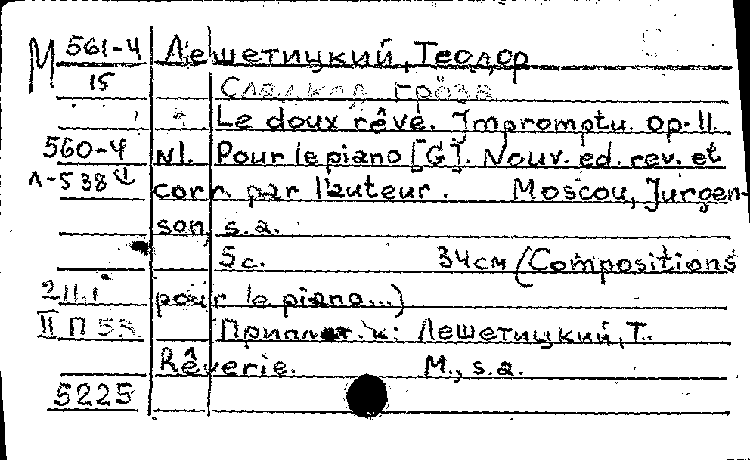 М 561-4 Лешетицкий, Теодор
15 Сладкая грёза
Le doux rêve. Impromptu. op. 11.
560-4 N1. Pour le piano [G]. Nouv. ed. rev. et
Л-538 corr. par l'auteur. Moscou, Jurgen-
son, s.a.
5 с. 34 см (Compositions
2.11.1 pour le piano...)
II П 58 Приплет. к: Лешетицкий, Т.
Rêverie. М., s.a.
5225